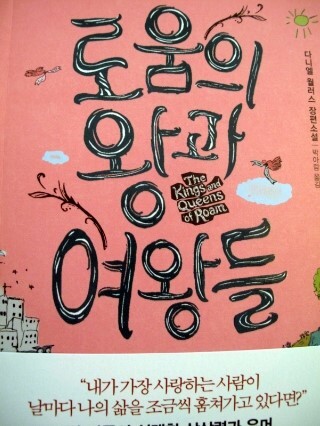 로움의
왕과
The
Kings and
Queens
of Roam
여왕들
다니엘 월러스 장편소설 | 박아람 옮김
"내가 가장 사랑하는 사람이
날마다 나의 삶을 조금씩 훔쳐가고 있다면?"